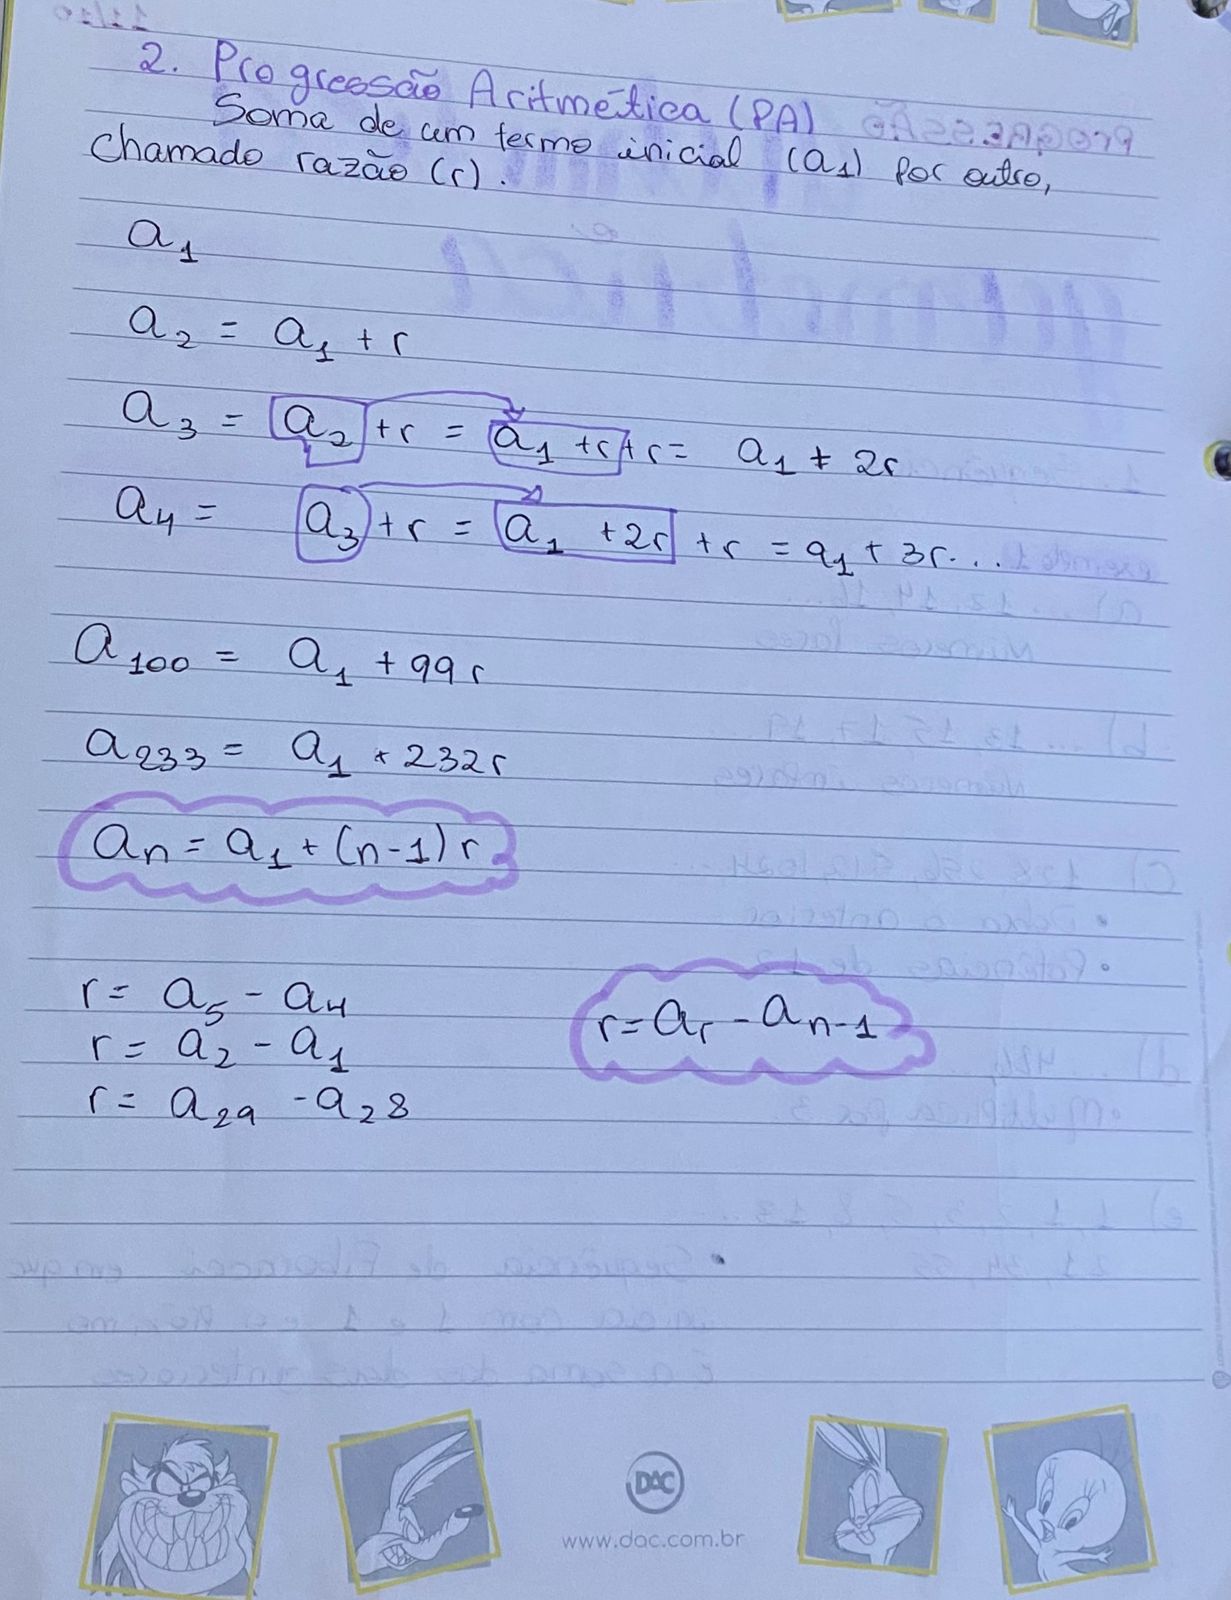 2. Progressão Aritmética (PA)
Soma de um termo inicial (a₁) por outro,
chamado razão (r).
a₁
a₂ = a₁ + r
a₃ = a₂ + r = a₁ + r + r = a₁ + 2r
a₄ = a₃ + r = a₁ + 2r + r = a₁ + 3r...
a₁₀₀ = a₁ + 99r
a₂₃₃ = a₁ + 232r
aₙ = a₁ + (n-1) r
r = a₅ - a₄
r = aᵣ - aₙ₋₁
r = a₂ - a₁
r = a₂₉ - a₂₈
DAC
www.dac.com.br